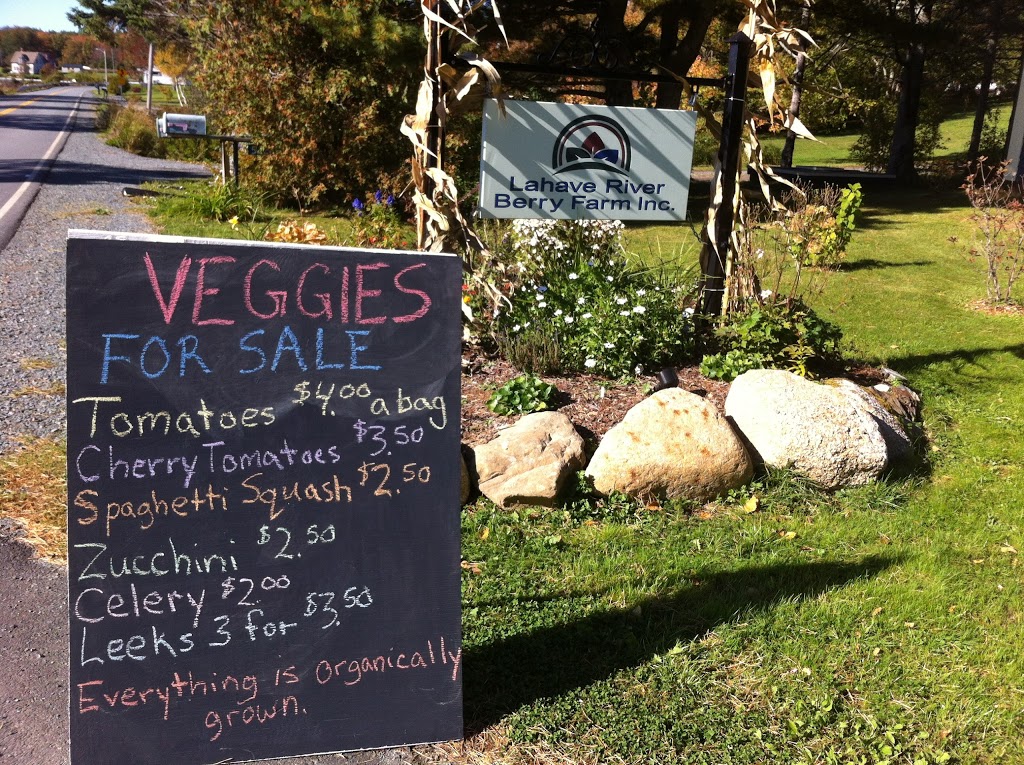 Lahave River
Berry Farm Inc.
VEGGIES
FOR SALE
Tomatoes $4.00 a bag
Cherry Tomatoes $3.50
Spaghetti Squash $2.50
Zucchini $2.50
Celery $2.00
Leeks 3 for $3.50
Everything is organically
grown.